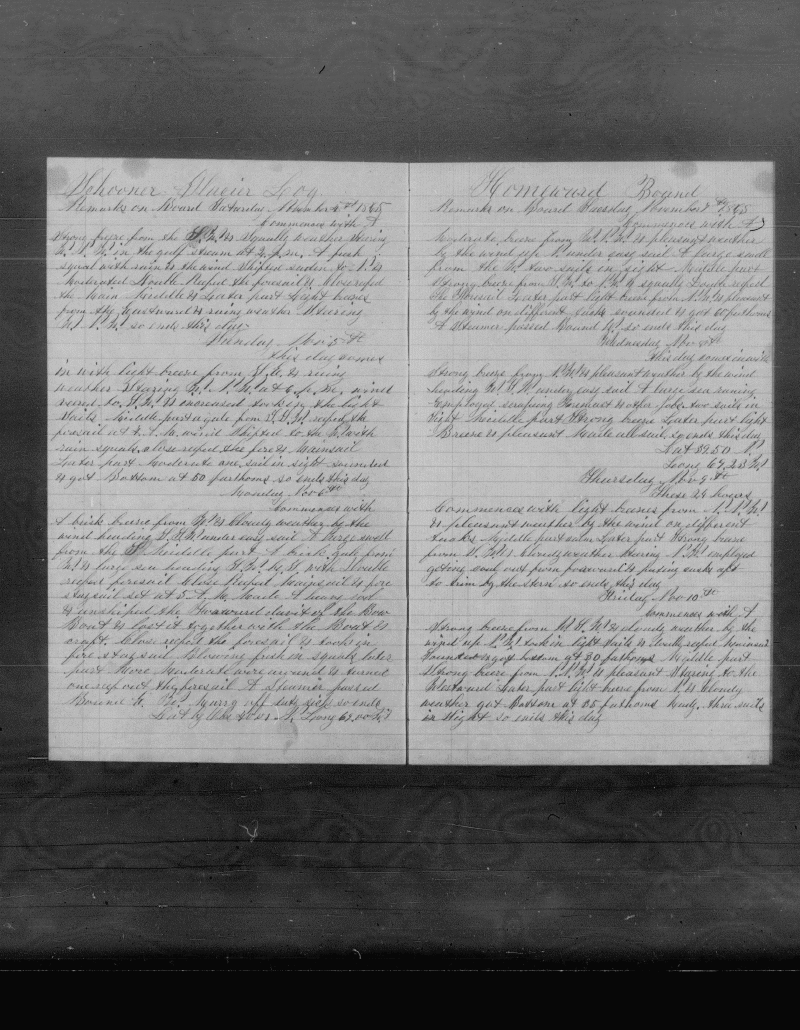 Schooner Glacier Log
Remarks on Board Saturday November 4th 1865
Commences with A
strong breeze from the S.W. & Squally weather Stering
in the gulf stream at 2 p.m. A
squal with rain & the wind Shifted sudon to N. &
moderated Double Reefed the foresail & close reefed
the main Middle & Later part light breeses
from the Eastward & rainy weather Staring
so ends this day
Sunday Nov 5th
This day comes
in with light breeze from S.E. & rainy
weather Staring at 6 p.m. wind
to & increased took in the light
Sails Middle part a gale from reefed the
foresail at A.M. wind Shifted to the with
rain squals close reefed the fore & Mainsail
Later part Moderate one sail in sight sounded
& got Bottom at 50 parthoms so ends this day
Monday Nov 6th
Commences with
A brisk breeze from & Cloudy weather by the
wind heading under easy sail A large swell
from the S. Middle part A brisk gale from
& large sea heading with Double
reefed foresail Close Reefed Mainsail & fore
staysail set at 5 A.M. Made A heavy
& unshiped the Forward davit of the Bow
Boat & lost it together with the Boat &
craft. Close reefed the foresail & took in
fore staysail Blowing fresh in squals later
part More Moderate wore around & turned
one reef out the foresail A Steamer passed
Bound so ends
Lat by Obs 40.01 N. Long 69.00 W.
Homeward Bound
Remarks on Board Tuesday November 7th 1865
Commences with A
Moderate breeze from & pleasant weather
by the wind up N. under easy sail A large swell
from the two sails in sight Middle part
Strong breeze from to squally Double reefed
The Foresail Later part light breese from N.W. & pleasant
by the wind on different tacks sounded & got 60 fathoms
A Steamer passed Bound W. so ends this day
Wednesday Nov 8th
This day comes in with
Strong breese from N.W. & pleasant weather by the wind
heading under easy sail A large sea runing
Employed scraping Foremast & other jobs two sails in
Sight Middle part Strong breese Later part light
Breese & pleasant Made all sail so ends this day
Lat 39.50 N.
Long 69.23 W
Thursday Nov 9th
These 24 hours
Commences with light breeses from
& pleasant weather by the wind on different
tacks Middle part calm Later part Strong breeze
from & cloudy weather Stering N.W. employed
geting from forward & puting casks aft
to trim by the stern so ends this day
Friday Nov 10th
Commences with A
strong breeze from & cloudy weather by the
wind up took in light sails & Double reefed Mainsail
Sounded & got bottom at 30 fathoms Middle part
Strong breese from N.W. & pleasant Staring to the
Westward Later part light breese from N. & cloudy
weather got Bottom at 35 fathoms three sails
in Sight so ends this day